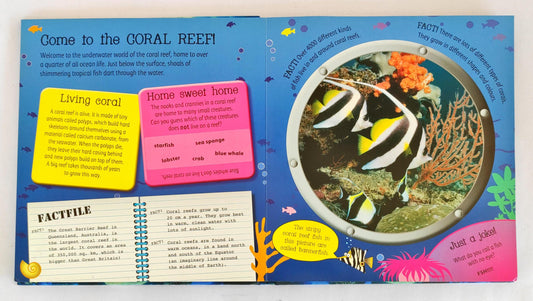 Come to the CORAL REEF!
Welcome to the underwater world of the coral reef, home to over
a quarter of all ocean life. Just below the surface, shoals of
shimmering tropical fish dart through the water.
Living coral
A coral reef is alive. It is made of tiny
animals called polyps, which build hard
skeletons around themselves using a
material called calcium carbonate, from
the seawater. When the polyps die,
they leave their hard casing behind
and new polyps build on top of them.
A big reef takes thousands of years
to grow this way.
Home sweet home
The nooks and crannies in a coral reef
are home to many small creatures.
Can you guess which of these creatures
does not live on a reef?
starfish
sea sponge
lobster
crab
blue whale
Blue whales don't live on coral reefs
FACTFILE
FACT! The Great Barrier Reef in
Queensland, Australia, is
the largest coral reef in
the world. It covers an area
of 350,000 sq. km, which is
bigger than Great Britain!
FACT! Coral reefs grow up to
20 cm a year. They grow best
in warm, clean water with
lots of sunlight.
FACT! Coral reefs are found in
warm oceans, in a band north
and south of the Equator
(an imaginary line around
the middle of Earth).
FACT! Over 4000 different kinds
of fish live in and around coral reefs.
FACT! There are lots of different types of coral.
They grow in different shapes and colours.
The stripy
coral reef fish in
this picture are
called bannerfish.
Just a joke!
What do you call a fish
with no eye?